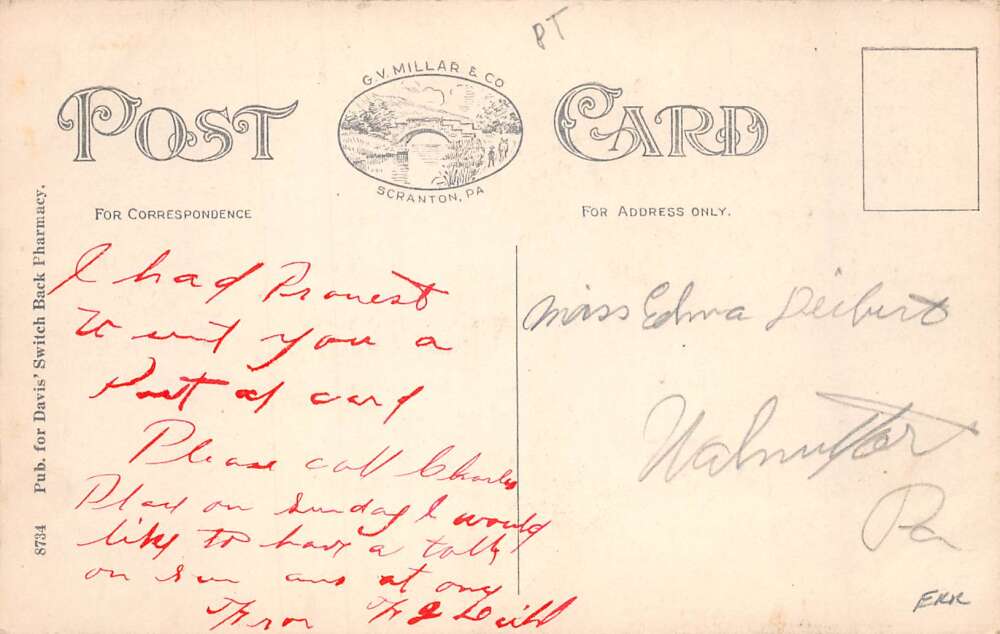 PT
G.V. MILLAR & CO
SCRANTON, PA
POST CARD
FOR CORRESPONDENCE
FOR ADDRESS ONLY.
8734 Pub. for Davis' Switch Back Pharmacy.
I had Promest
you a
Post al card
Please call Charles
Place on Sunday I would
like to have a talk
on Sun ans at ony
From
Miss Edna Deibert
Walnutport
Pa
EKR